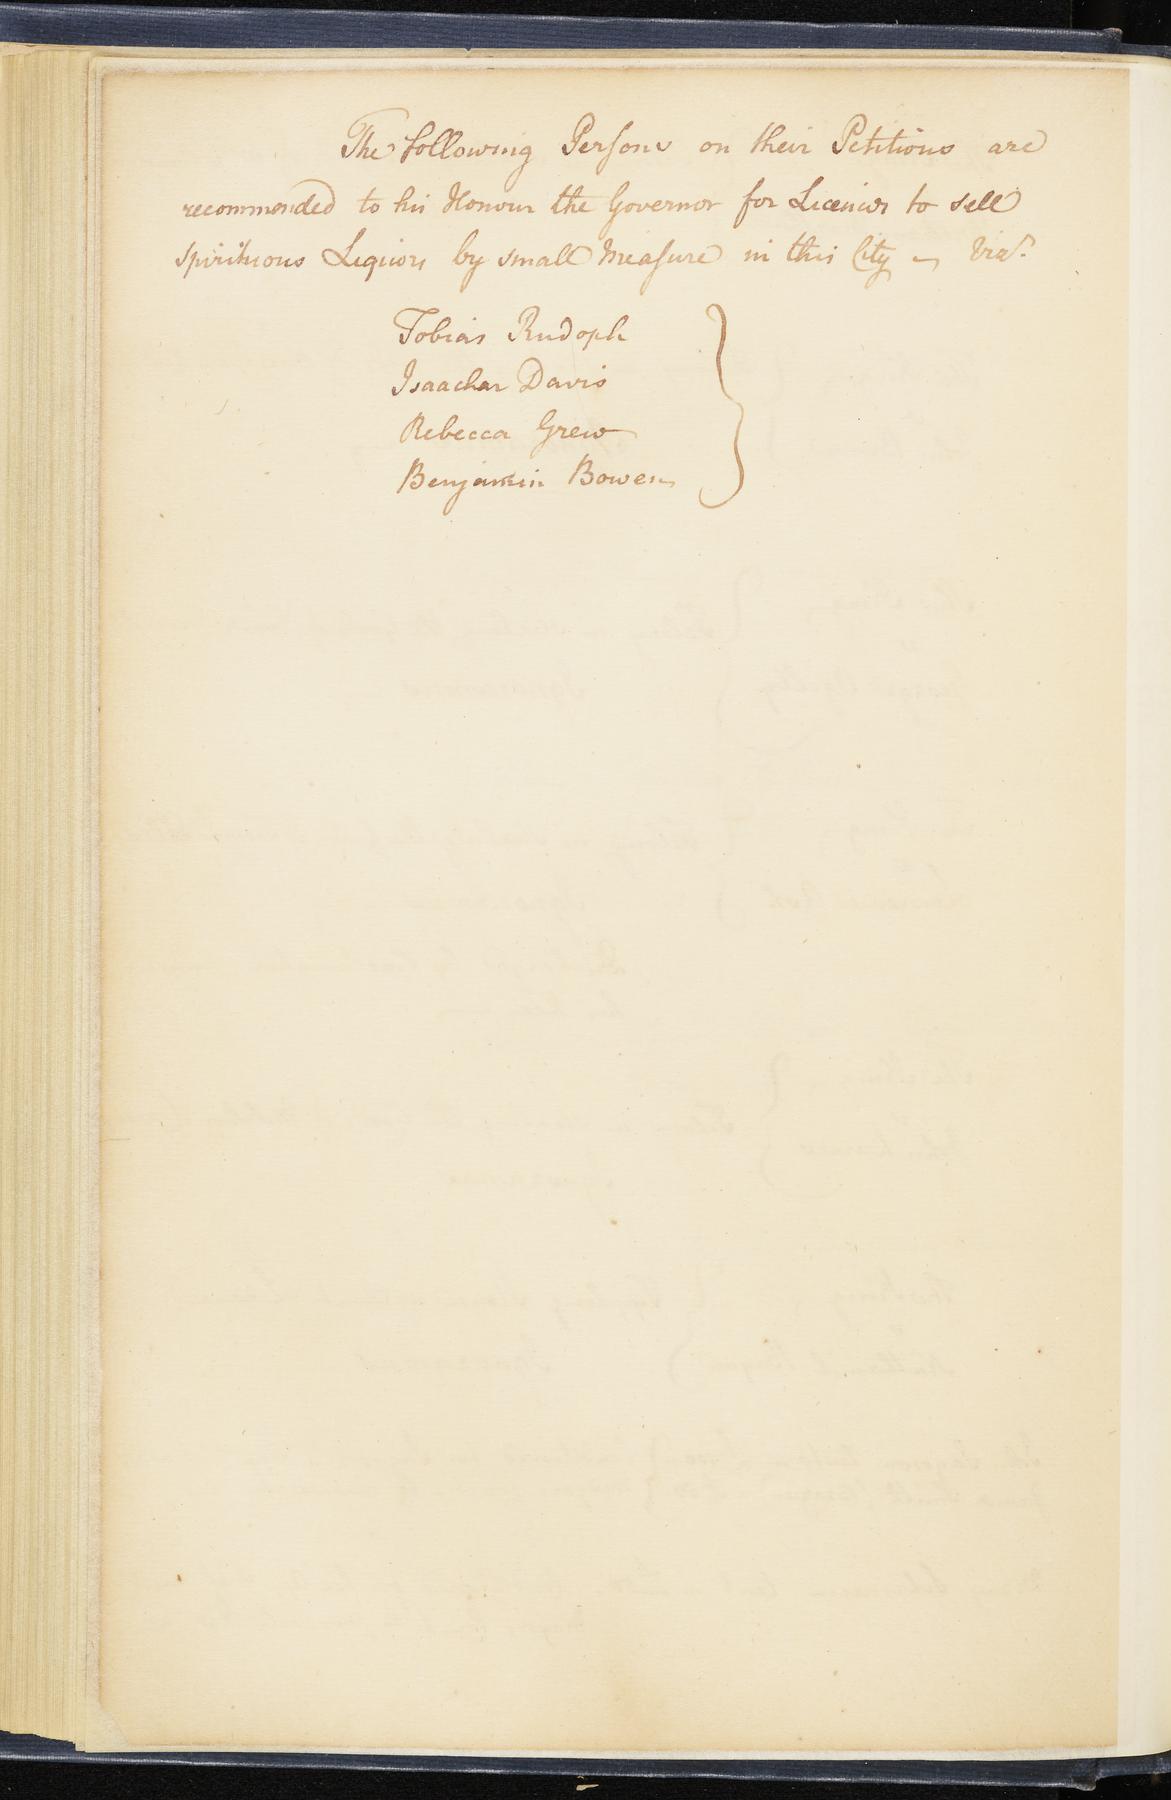 The following Persons on their Petitions are
recommended to his Honour the Governor for Licences to sell
spirituous Liquors by small Measure in this City — Vizt.
Tobias Rudoph
Isaachar Davis
Rebecca Grew
Benjamin Bowen